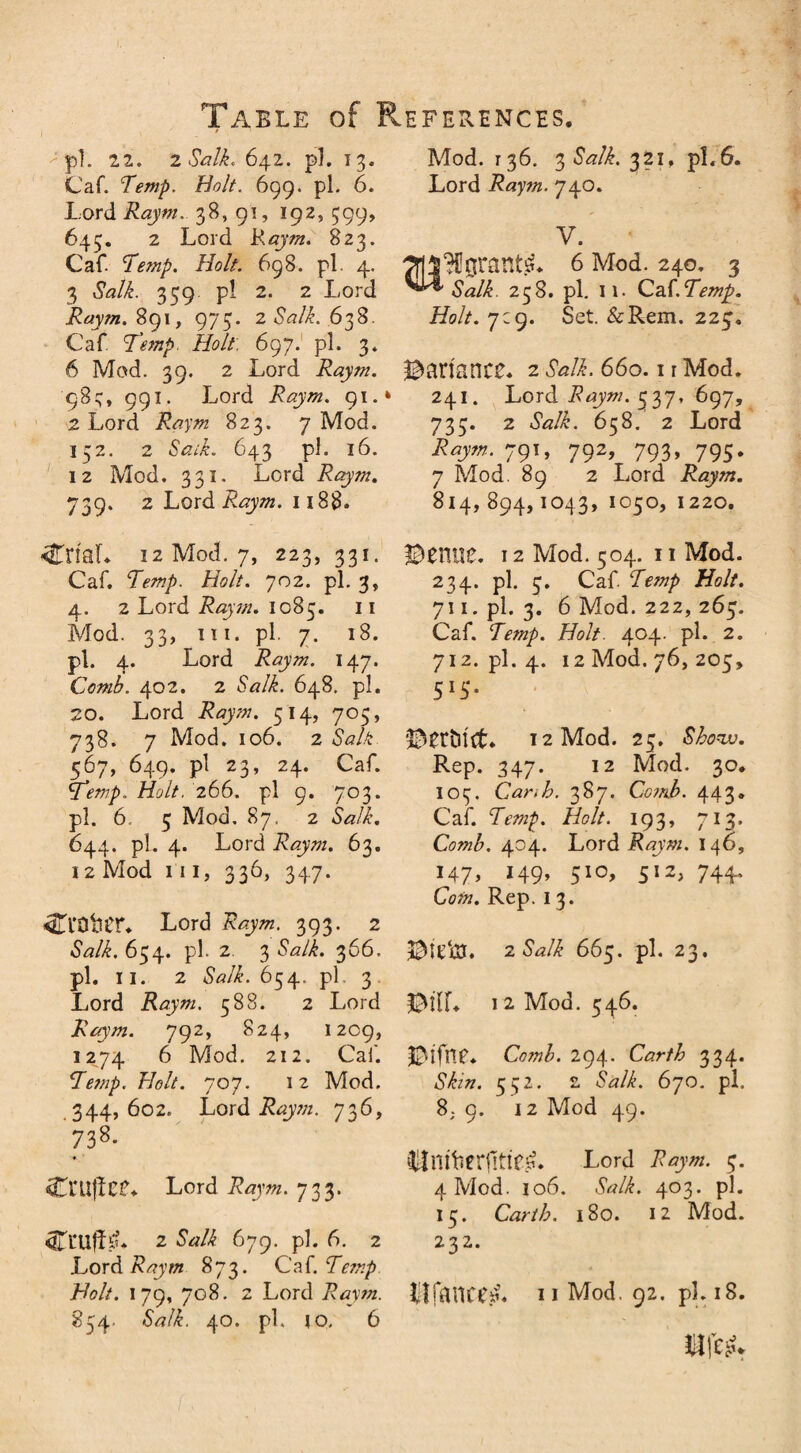 TABLE of REFERENCES.
pl. 22. 2 Salk. 642. pl. 13.
Caf. Temp. Holt. 699. pl. 6.
Lord Raym. 38, 91, 192, 599,
645. 2 Lord Raym. 823.
Caf. Temp. Holt. 698. pl. 4.
3 Salk. 359 pl 2. 2 Lord
Raym. 891, 975. 2 Salk. 638.
Caf. Temp. Holt. 697. pl. 3.
6 Mod. 39. 2 Lord Raym.
985, 991. Lord Raym. 91.
2 Lord Raym 823. 7 Mod.
152. 2 Salk. 643 pl. 16.
12 Mod. 331. Lord Raym.
739. 2 Lord Raym. 1188.
Trial. 12 Mod. 7, 223, 331.
Caf. Temp. Holt. 702. pl. 3,
4. 2 Lord Raym. 1085. 11
Mod. 33, 111. pl. 7. 18.
pl. 4. Lord Raym. 147.
Comb. 402. 2 Salk. 648. pl.
20. Lord Raym. 514, 705,
738. 7 Mod. 106. 2 Salk
567, 649. pl 23, 24. Caf.
Temp. Holt. 266. pl 9. 703.
pl. 6. 5 Mod. 87. 2 Salk.
644. pl. 4. Lord Raym. 63.
12 Mod 111, 336, 347.
Trover. Lord Raym. 393. 2
Salk. 654. pl. 2. 3 Salk. 366.
pl. 11. 2 Salk. 654. pl. 3.
Lord Raym. 588. 2 Lord
Raym. 792, 824, 1209,
1274 6 Mod. 212. Caf.
Temp. Holt. 707. 12 Mod.
344, 602. Lord Raym. 736,
738.
Trustee. Lord Raym. 733.
Trusts. 2 Salk 679. pl. 6. 2
Lord Raym 873. Caf. Temp
Holt. 179, 708. 2 Lord Raym.
854. Salk. 40. pl. 10. 6
Mod. 136. 3 Salk. 321, pl. 6.
Lord Raym. 740.
V.
Vagrants. 6 Mod. 240. 3
Salk. 258. pl. 11. Caf. Temp.
Holt. 709. Set. & Rem. 225.
Variance. 2 Salk. 660. 11 Mod.
241. Lord Raym. 537, 697,
735. 2 Salk. 658. 2 Lord
Raym. 791, 792, 793, 795.
7 Mod. 89 2 Lord Raym.
814, 894, 1043, 1050, 1220.
Venue. 12 Mod. 504. 11 Mod.
234. pl. 5. Caf. Temp Holt.
711. pl. 3. 6 Mod. 222, 265.
Caf. Temp. Holt. 404. pl. 2.
712. pl. 4. 12 Mod. 76, 205,
515.
Verdict. 12 Mod. 25. Show.
Rep. 347. 12 Mod. 30.
105. Carth. 387. Comb. 443.
Caf. Temp. Holt. 193, 713.
Comb. 404. Lord Raym. 146,
147, 149, 510, 512, 744.
Com. Rep. 13.
View. 2 Salk 665. pl. 23.
Vill. 12 Mod. 546.
Visne. Comb. 294. Carth 334.
Skin. 552. 2 Salk. 670. pl.
8, 9. 12 Mod 49.
Universities. Lord Raym. 5.
4 Mod. 106. Salk. 403. pl.
15. Carth. 180. 12 Mod.
232.
Usances. 11 Mod. 92. pl. 18.
Uses.